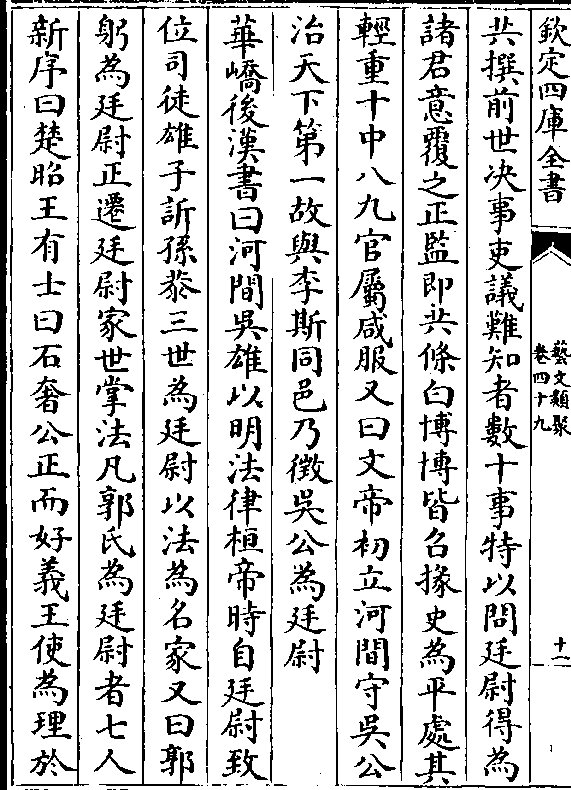 欽定四庫全書
藝文類聚
卷四十九
十一
共撰前世决事吏議難知者數十事特以問廷尉得為
諸君意覆之正監即共條白博博皆召掾史為平處其
輕重十中八九官屬咸服又曰文帝初立河間守吳公
治天下第一故與李斯同邑乃徵吳公為廷尉
華嶠後漢書曰河間吳雄以明法律桓帝時自廷尉致
位司徒雄子訢孫㳟三世為廷尉以法為名家又曰郭
躬為廷尉正遷廷尉家世掌法凡郭氏為廷尉者七人
新序曰楚昭王有士曰石奢公正而好義王使為理於